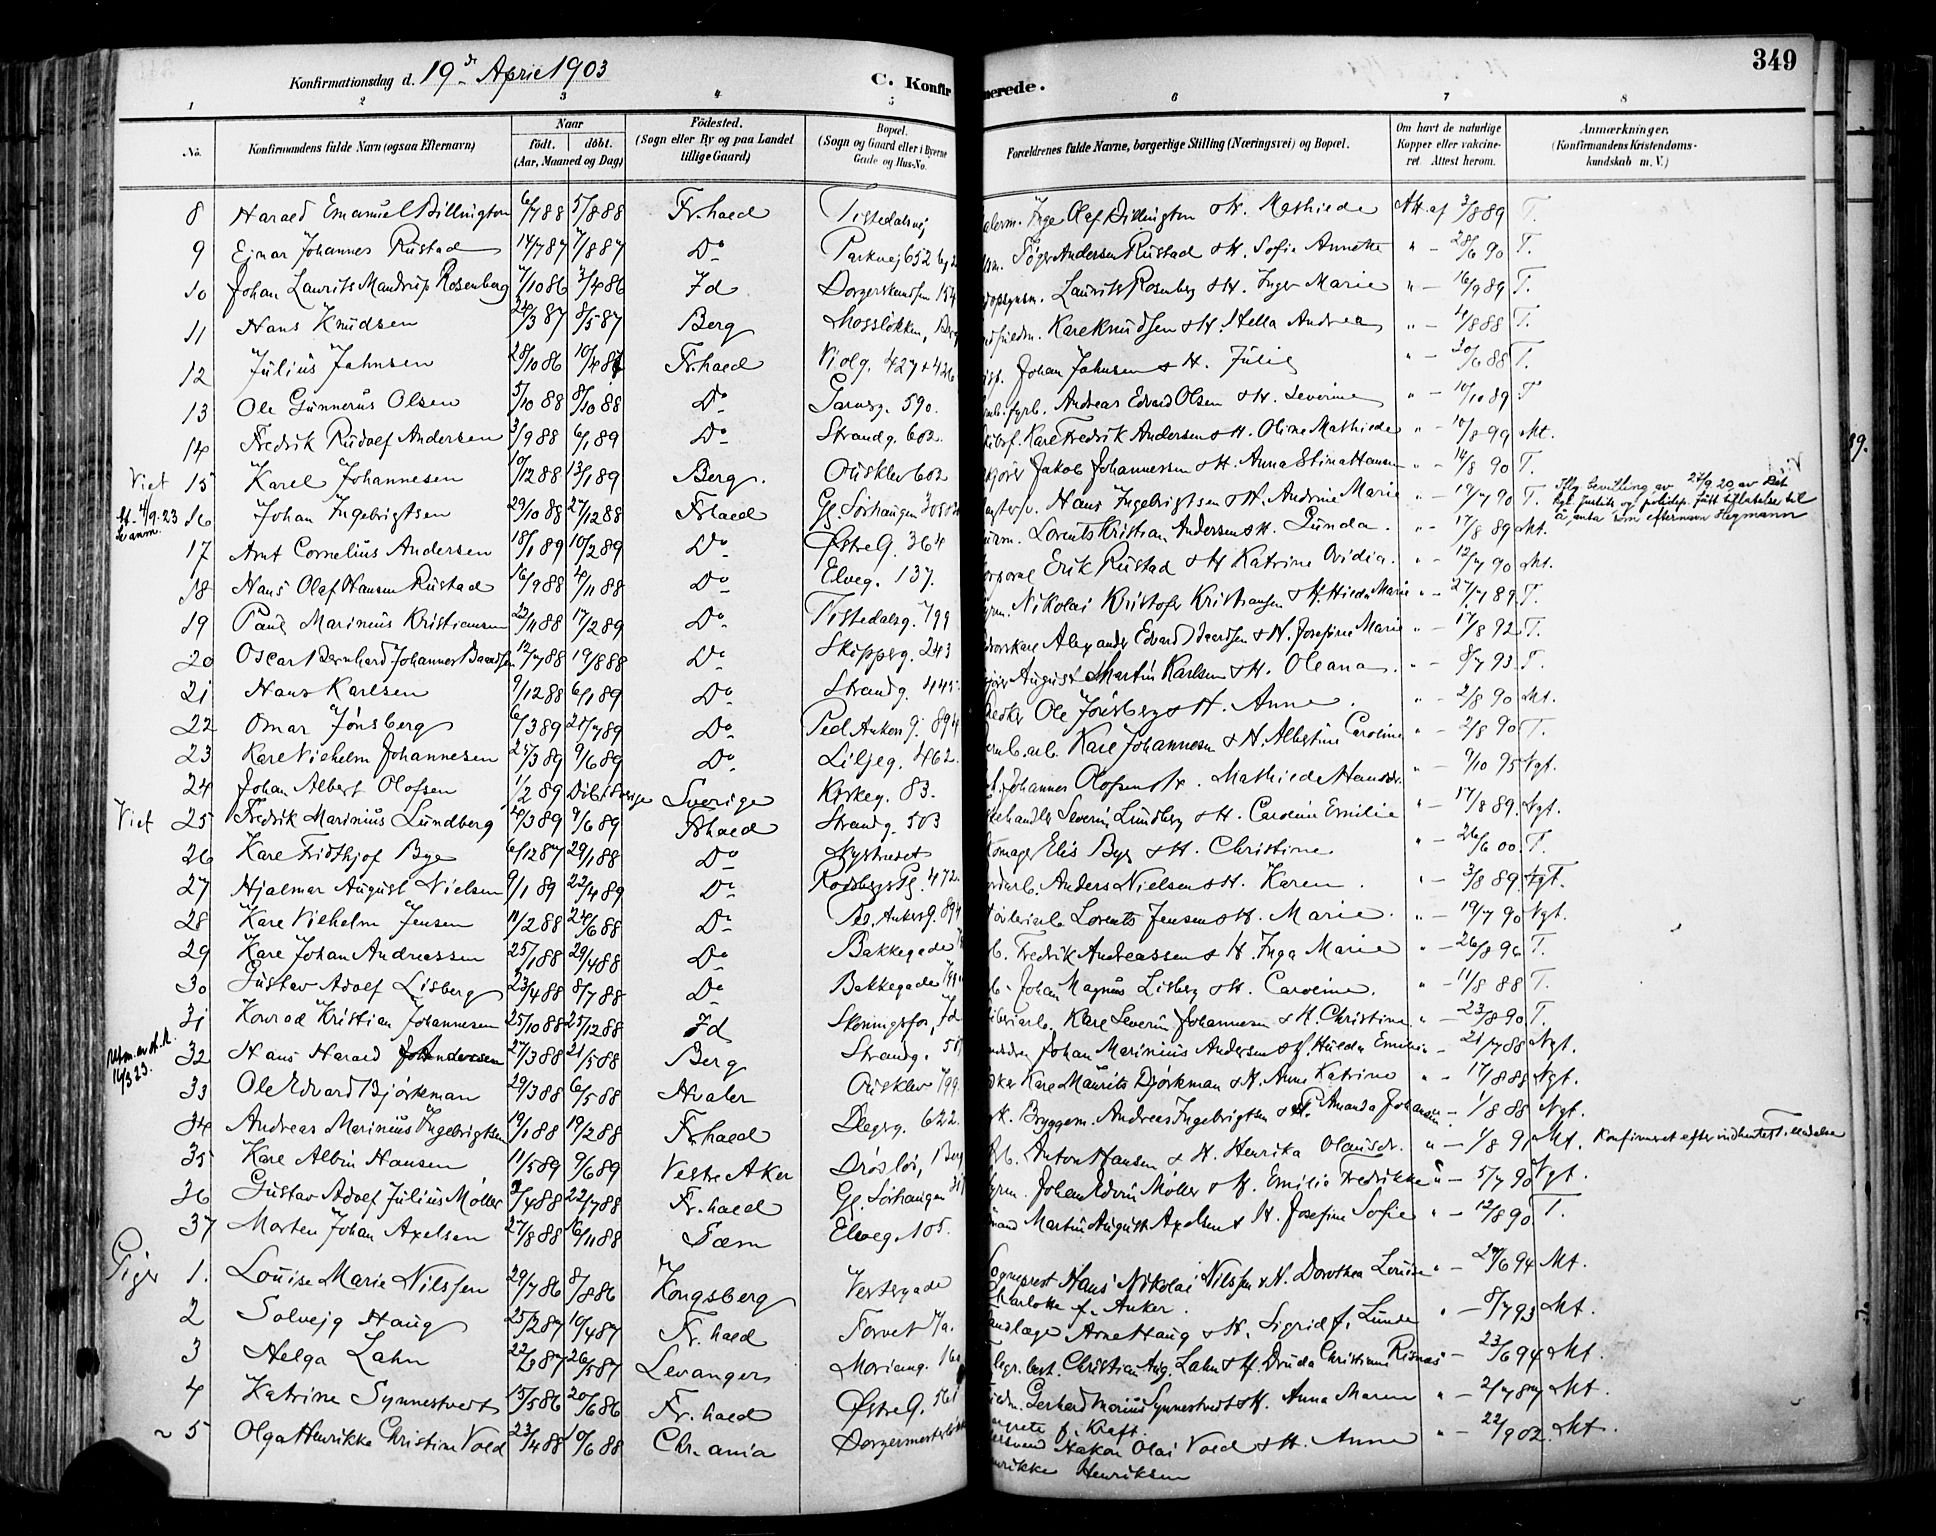 349
Konfirmationsdag d. 19de April 1903
C. Konfirmerede.
1 2 3 4 5 6 7 8
No. Konfirmandens fulde Navn (ogsaa Efternavn) Naar født. døbt. (Aar, Maaned og Dag) Fødested. (Sogn eller By og paa Landet tillige Gaard) Bopæl. (Sogn og Gaard eller i Byerne Gade og Hus-No. Forældrenes fulde Navne, borgerlige Stilling (Næringsvei) og Bopæl. Om havt de naturlige Kopper eller vaccineret. Attest herom. Anmærkninger. (Konfirmandens Kristendomskundskab m. V.)
8 Harald Emanuel Billington 6/7 88 5/8 88 Fr.hald Tistedalsvej Olaf Billington & H. Mathilde Att. af 3/8 89 T.
9 Ejnar Johannes Rustad 14/7 87 7/8 87 Do Parkvej 652 Andersen Rustad & H. Sofie Annette " - 28/6 90 T.
10 Johan Laurits Mandrup Rosenberg 7/10 86 Id Laurits Rosenberg & H. Inger Marie " - 16/9 89 T.
11 Hans Knudsen 24/3 87 8/5 87 Berg Mosslökken, Berg Karl Knudsen & H. Hella Andrea " - 4/8 88 T.
12 Julius Jahnsen 28/10 86 Fr.hald Violg. 427 + 426 Johan Jahnsen & H. Julie " - 20/6 88 T.
13 Ole Gunnerus Olsen 5/10 88 8/10 88 Do Garverg. 590. Andreas Edvard Olsen & H. Severine " - 10/10 89 T
14 Fredrik Rudolf Andersen 3/9 88 6/1 89 Do Strandg. 602. Karl Fredrik Andersen & H. Oline Mathilde " - 10/8 99 Mt.
Viet 15 Karel Johannesen 10/12 88 13/1 89 Berg. Ousklev 602 Jakob Johannessen & H. Anna Stina Hansen " - 14/8 90 T.
16 Johan Ingebrigtsen 29/10 88 27/12 88 Frhald Gl. Sörhaugen Hans Ingebrigtsen & H. Andrine Marie " - 19/7 90 T. Iflg bevilling av 27/9 20 av Det kgl. Justis og politidep. fått tillatelse til å anta som efternavn Hegmann
17 Arnt Cornelius Andersen 18/1 89 10/2 89 Do ØstreG. 364 Lorents Kristian Andersen & H. Gunda. " - 17/8 89 Mt.
18 Hans Olaf Hansen Rustad 16/9 88 4/11 88 Do Elveg. 137. Erik Rustad & H Katrine Ovidia. " - 12/7 90 Mt.
19 Paul Marinius Kristiansen 23/11 88 17/2 89 Do Tistedalsg. 799 Nikolai Kristofer Kristiansen & H. Hilda Marie " - 27/7 89 T.
20 Oscar Bernhard Johannes Baardsen 12/7 88 19/8 88 Do Skipperg. 243 Alexander Edvard Baardsen & H. Josefine Marie " - 17/8 92. T.
21 Hans Karlsen 9/12 88 6/1 89 Do Strandg. 445. August Martin Karlsen & H. Oleana. " - 8/7 93. T.
22 Omar Jönsberg 6/3 89 21/7 89 Do Ped Ankers g. 894 Ole Jönsberg & H. Anne. " - 2/8 90 Mt.
23 Karl Vilhelm Johannesen 25/3 89 9/6 89 Do Liljeg. 462. Karl Johannesen & H. Albertine Caroline " - 2/8 90 T.
24 Johan Albert Olofsen 1/2 89 Döbt Sverige Sverige Kirkeg. 83. Johannes Olofsen & H. Mathilde Hansdr. " - 9/10 95 Ngt.
Viet 25 Fredrik Marinius Lundberg 4/3 89 9/6 89 Frhald Strandg. 503 Severin Lundberg & H. Carolin Emilie " - 17/8 89. Ngt.
26 Karl Fridthjof Bye 6/12 87 29/1 88 Do Nystredet Elis Bye & H. Christine " - 26/6 00. T.
27 Hjalmar August Nielsen 9/1 89 22/4 89 Do Rödsbergs g. 472 Anders Nielsen & H. Karen. " - 3/8 89 Ngt.
28 Karl Vilhelm Jensen 11/2 88 24/6 88 Do Pe. Ankers g. 894 Lorents Jensen & H. Marie. " - 19/7 90 Ngt.
29 Karl Johan Andreassen 25/1 88 29/4 88 Do Bakkegade Fredrik Andreassen & H Inga Marie " - 26/8 96 T.
30 Gustav Adolf Lisberg 23/4 88 8/7 88 Do Bakkegade Johan Magnus Lisberg & H. Caroline. " - 11/8 88 T.
31 Konrad Kristian Johannesen 25/10 88 25/12 88 Id Skoningsfos, Id Karl Severin Johannesen & H. Christine " - 23/8 90 T.
32 Hans Harald Andersen 27/3 88 21/5 88 Berg Strandg. Johan Marinius Andersen & H. Hulda Emilie - 21/7 88 Ngt.
33 Ole Edvard Bjørkman 29/3 88 6/5 88 Hvaler Ousklev 799 Karl Maurits Bjørkman & H. Anne Katrine " - 17/8 88 Ngt.
34 Andreas Marinius Ingebrigtsen 19/1 88 19/2 88 Fr.hald Elagrg. 622. Bryggem. Andreas Ingebrigtsen & H. Amanda Johansen - 1/8 88 Ngt.
35 Karl Albin Hansen 11/5 89 9/6 89 Vestre Aker Anton Hansen & H. Henrika Olausdr. " - 1/8 91 Mt. Konfirmeret efter indhentet tilladelse
36 Gustav Adolf Julius Møller 2/4 88 22/7 88 Fr.hald Gl. Sörhaugen Johan Edvin Møller & H. Emilie Fredrikke " - 5/7 90 Ngt.
37 Morten Johan Axelsen 27/8 88 16/11 88 Dæm Elveg. 105. Martin August Axelsen & H. Josefine Sofie " - 12/8 90. T.
Piger 1. Louise Marie Nilssen 29/7 86 8/8 86 Kongsberg Vestergade Sogneprest Hans Nikolai Nilssen & H. Dorothea Louise Charlotte f. Anker. " - 29/6 94 Mt.
2 Solvejg Haug 25/2 87 10/4 87 Fr.hald Torvet Arne Haug & H. Sigrid f. Lunde " - 8/7 93 Mt.
3 Helga Lahn 22/3 87 26/5 87 Levanger Christian Aug. Lahn & H. Druda Christiane Risnæs - 23/6 94 Mt.
4 Katrine Synnestvedt 15/5 86 20/6 86 Fr. hald Østre G. 561 Gerhard Marius Synnestvedt & H. Anna Maren Margrete f. Kraft. " - 2/7 87 Mt.
5 Olga Henrikke Christine Vold 23/4 88 10/6 88 Chr.ania Hakon Olai Vold & H. Anne Henrikke Henriksen " - 22/9 02. Mt.